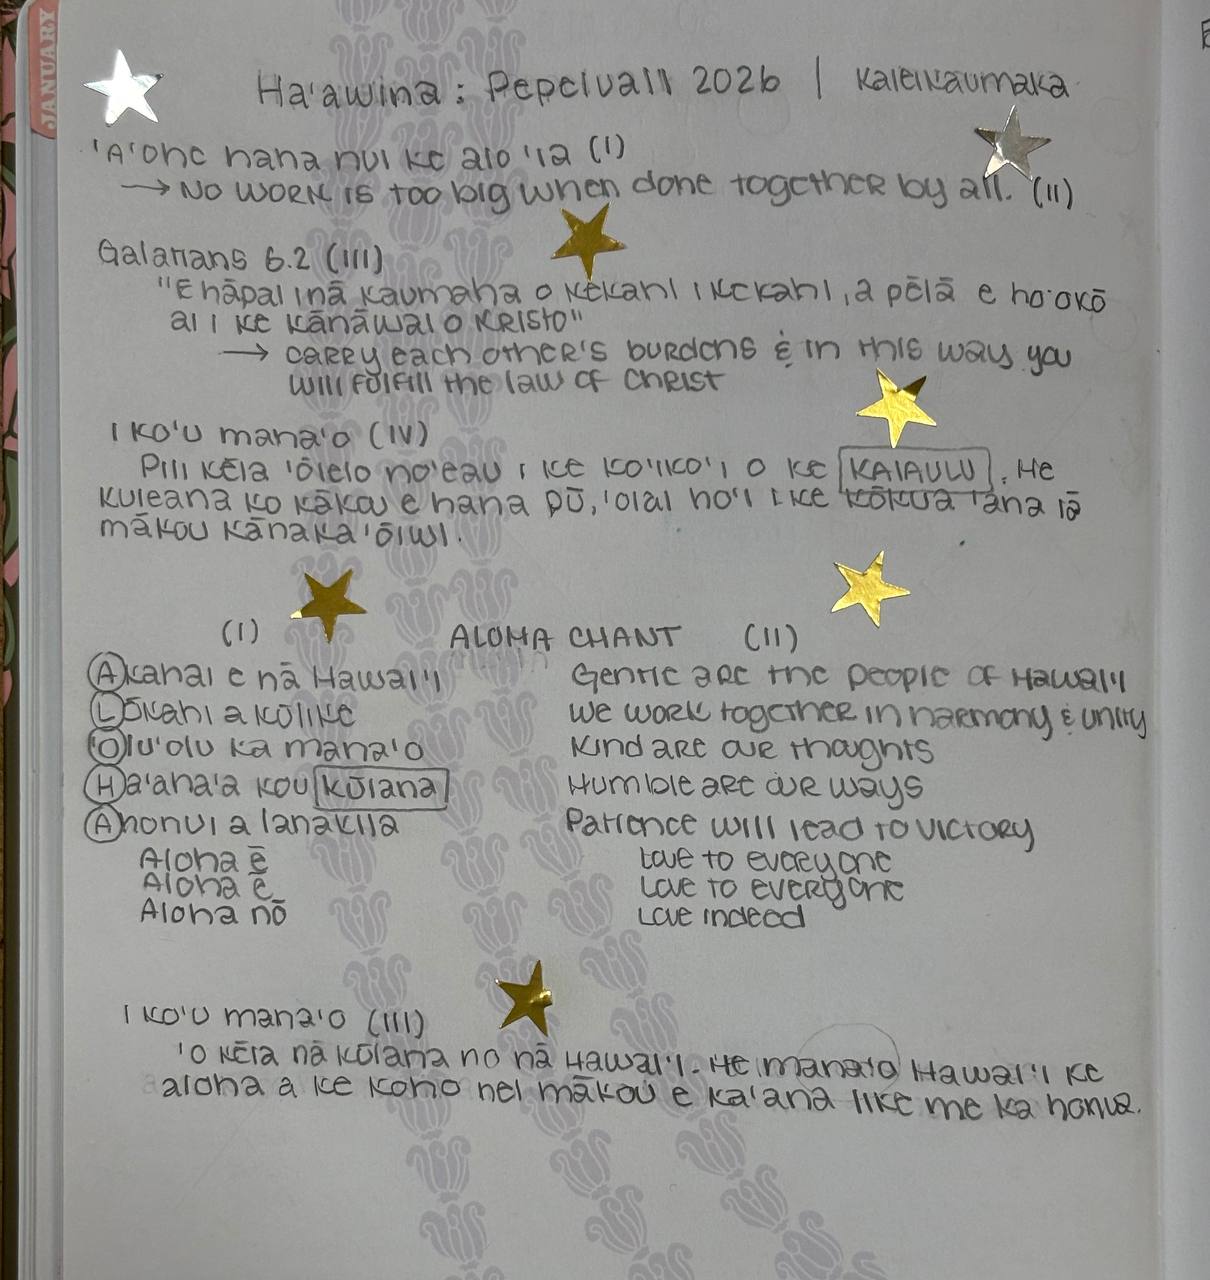 JANUARY
Ha'awina : Pepeluali 2026 | Kaleikaumaka
'A'ohe hana nui ke alo 'ia (I)
→ No work is too big when done together by all. (II)
Galatians 6.2 (III)
"E hāpai i nā kaumaha o kekahi i kekahi, a pēlā e ho'okō
ai i ke kānāwai o Kristo"
→ carry each other's burdens & in this way you
will fulfill the law of Christ
I ko'u mana'o (IV)
Pili kēia 'ōlelo no'eau i ke ko'iko'i o ke KAIAULU. He
kuleana ko kākou e hana pū, 'oiai ho'i i ke kōkua 'ana iā
mākou kānaka 'ōiwi.
(I) ALOHA CHANT (II)
Akahai e nā Hawai'i Gentle are the people of Hawai'i
Lōkahi a kūlike We work together in harmony & unity
'Olu'olu ka mana'o Kind are our thoughts
Ha'aha'a kou kūlana Humble are our ways
Ahonui a lanakila Patience will lead to victory
Aloha ē Love to everyone
Aloha ē Love to everyone
Aloha nō Love indeed
I ko'u mana'o (III)
'O kēia nā kūlana no nā Hawai'i. He mana'o Hawai'i ke
aloha a ke koho nei mākou e ka'ana like me ka honua.